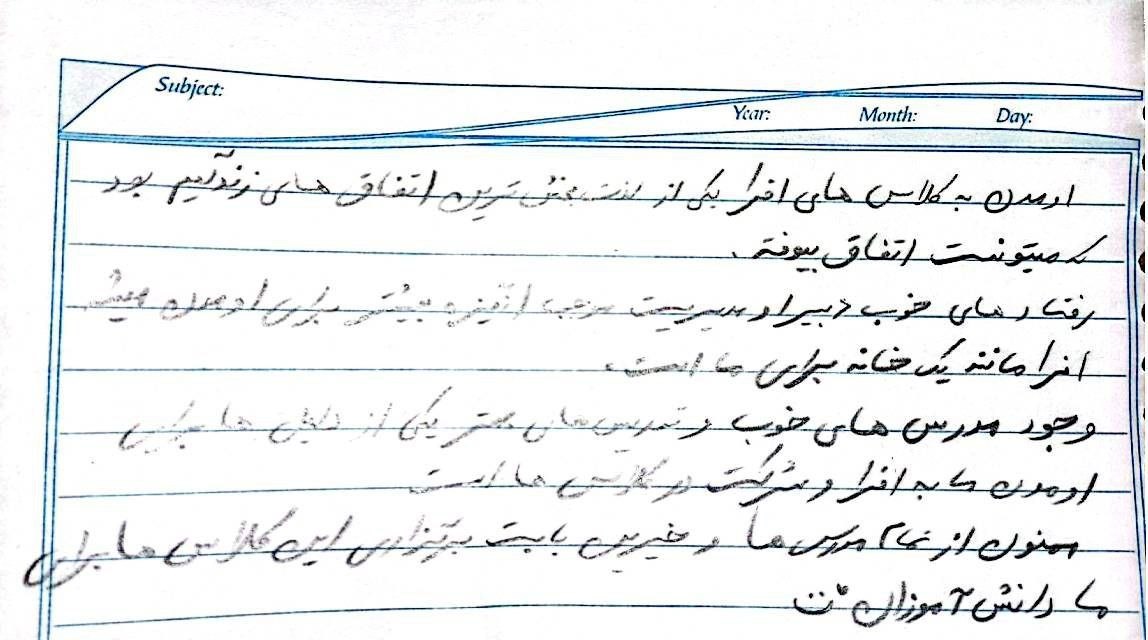 Subject:
Year: Month: Day:
اومدن به کلاس های افرا یکی از لذت بخش ترین اتفاق های زندگیم بود
که میتونست اتفاق بیوفته.
رفتار های خوب دبیرا و مدیریت موجب انگیزه بیشتر برای اومدن میشه
افرا مانند یک خانه برای ما است.
وجود مدرس های خوب و تدریس های بهتر یکی از دلیل ها برای
اومدن ما به افرا و شرکت در کلاس ها است
ممنون از تمام مدرس ها و خیرین بابت برگزاری این کلاس ها برای
ما دانش آموزان